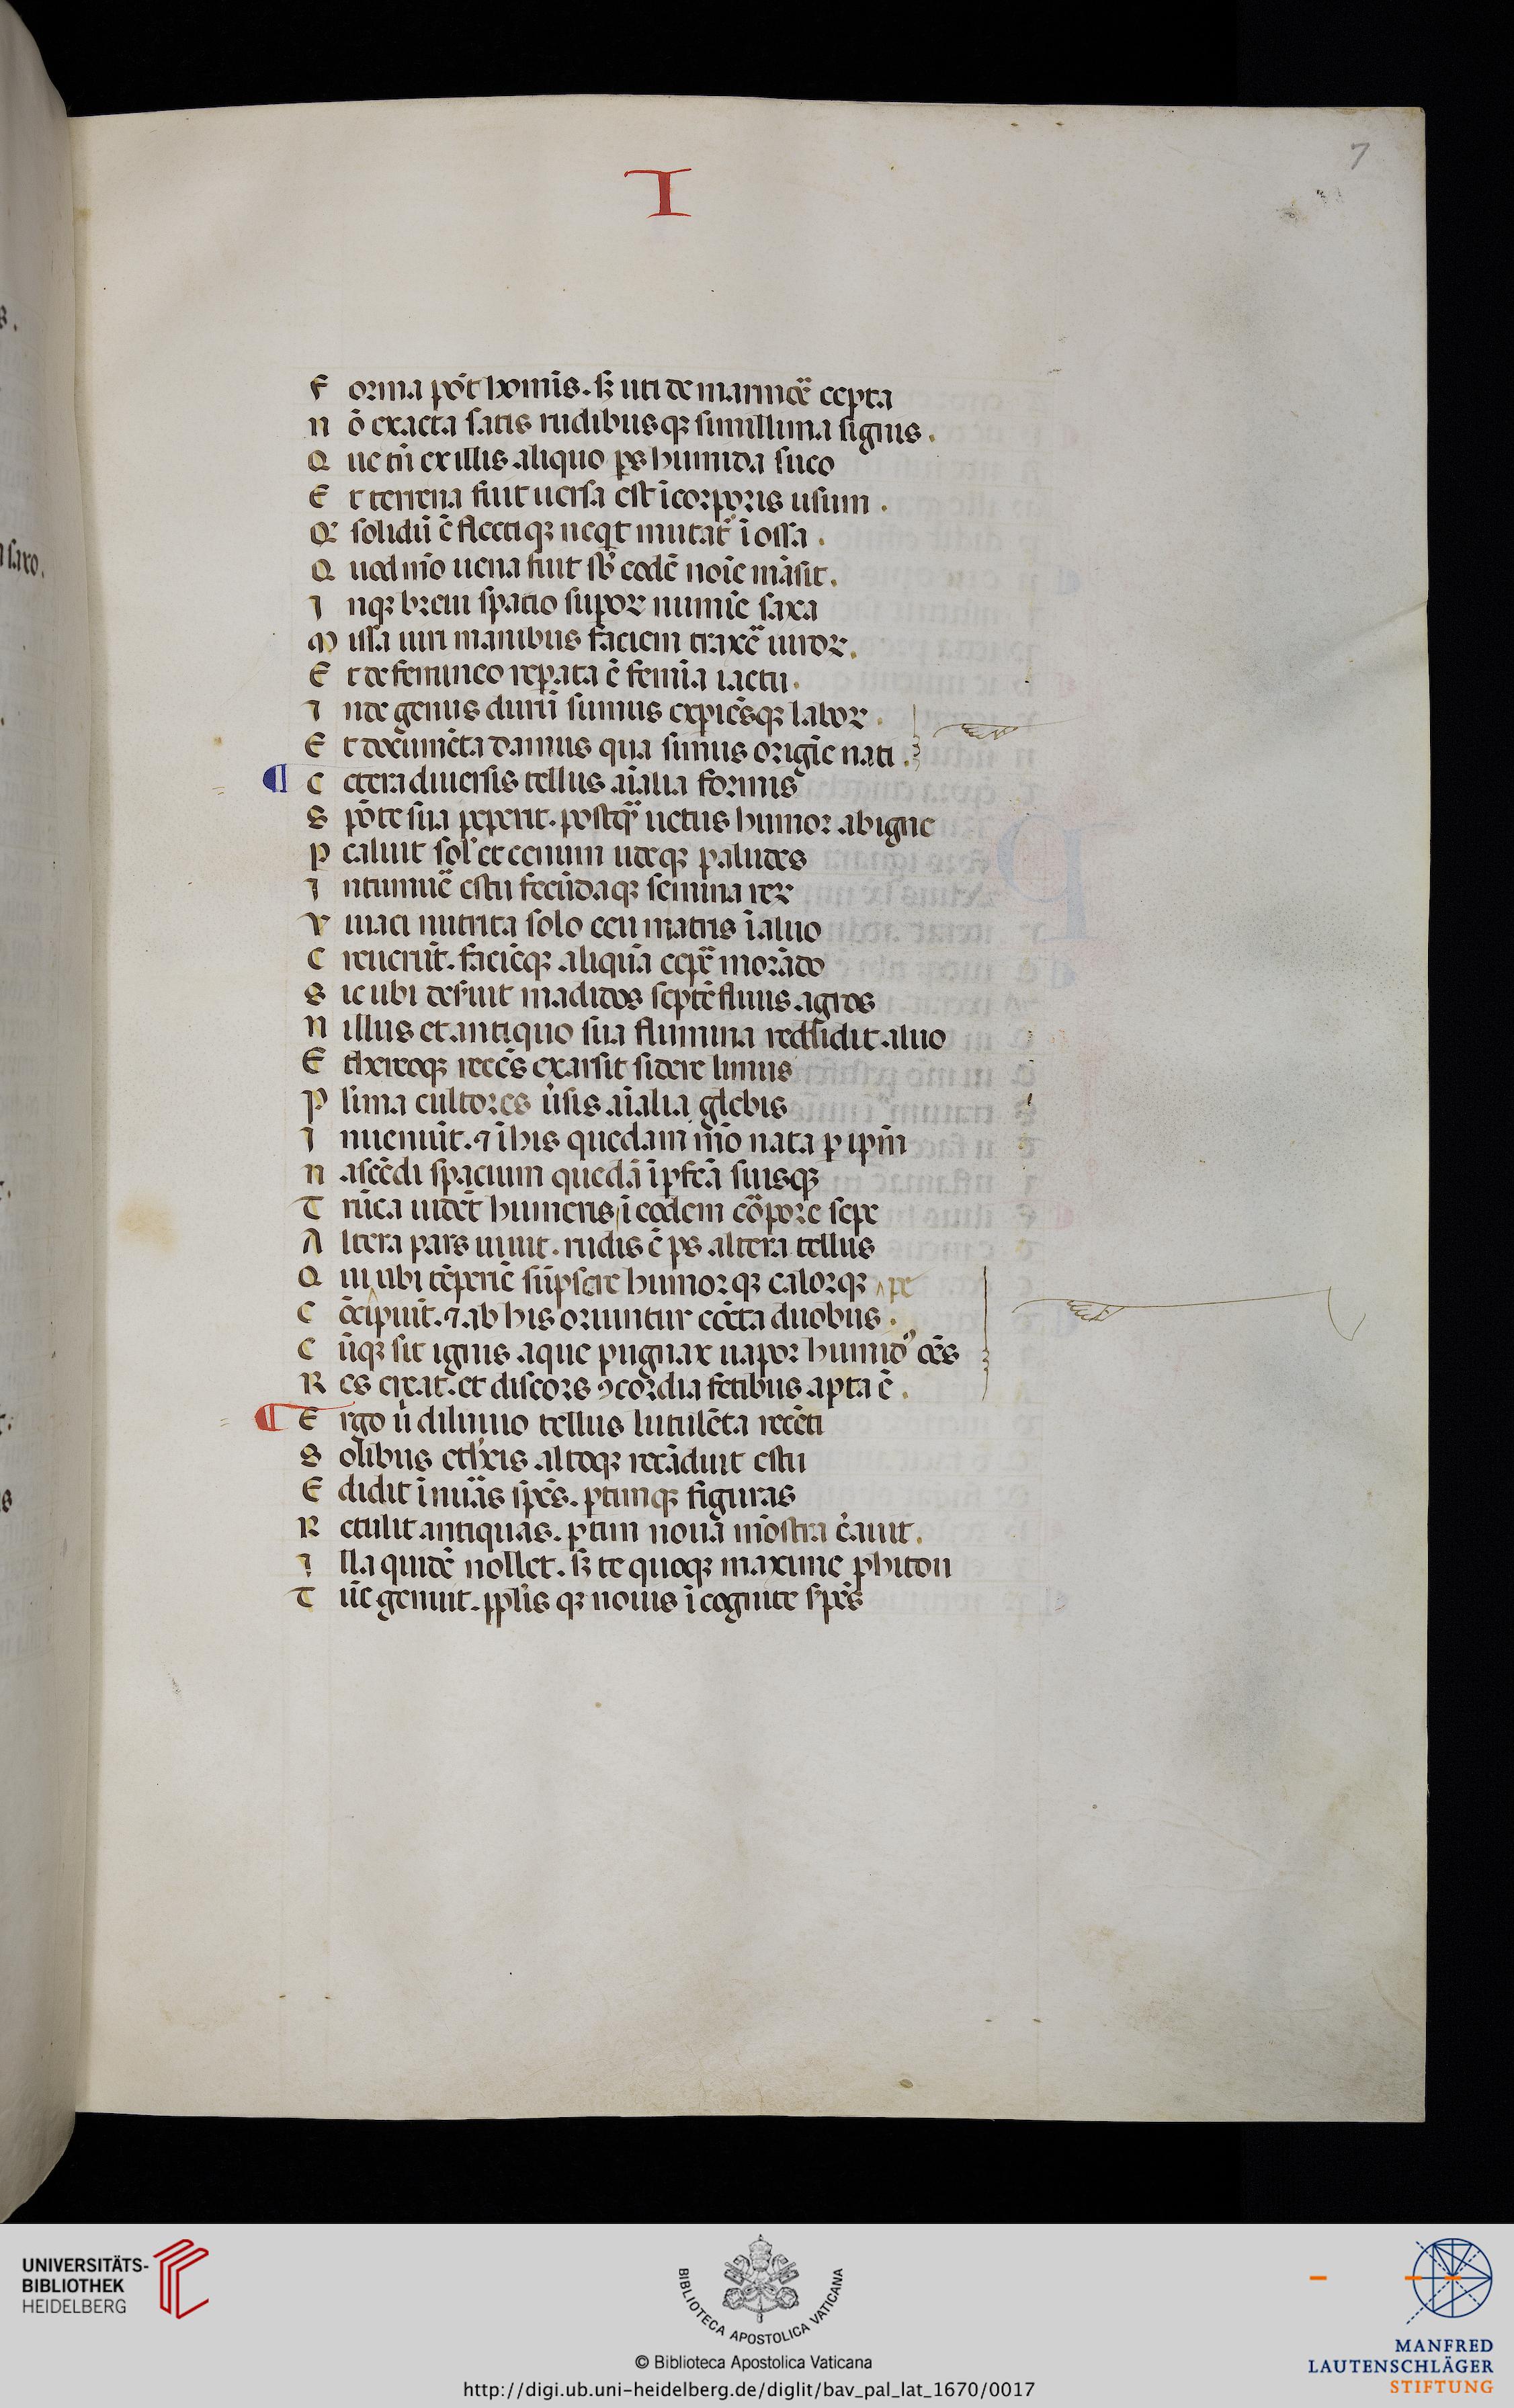 7
I
F orma pōt hominis. sꝫ uti de marmoē cepta
n ō exacta satis rudibusqꝫ simillima signis.
Q ue tn̄ ex illis aliquo ps humida suco
E t terrena fuit uersa est ī corporis usum.
Qͩ solidū ē flectiqꝫ neqͥt mutat᷑ ī ossa.
Q uod mō uena fuit sb̄ eodē noīe māsit.
I nqꝫ breui spatio supoꝝ numīe saxa
M issa uiri manibus faciem traxē uiroꝝ.
E t de femineo repata ē femīa iactu.
I nde genus durū sumus expiēsqꝫ laboꝝ.
E t documēta damus qua simus origīe nati.
¶ C etera diuersis tellus aīalia formis
S pōte sua peperit. postqᷓ uetus humor ab igne
P ercaluit sol᷑ et cenum udeqꝫ paludes
I ntumuē estu fecūdaqꝫ semina reꝝ
V iuaci nutrita solo ceu matris ī aluo
C reuerūt. faciēqꝫ aliquā cepē morādo
S ic ubi deseruit madidos septēfluus agros
N illus et antiquo sua flumina reddidit aluo
E thereoqꝫ recēs exarsit sidere limus
P lima cultores ūsis aīalia glebis
I nueniūt. ⁊ ī his quedam mō nata p ipm̄
N ascēdi spacium quedā īpfcā suisqꝫ
T rūca uidēt humeris ī eodem cōpore sepe
A ltera pars uiuit. rudis ē ps altera tellus
Q ui ubi tēperiē sūpsere humorqꝫ calorqꝫ
C ōcipiūt. ⁊ ab his oriuntur cōcta duobus.
C ūqꝫ sit ignis aque pugnax uapor humidꝰ oēs
R es creat᷑. et discors ꝯcordia fetibus apta ē.
¶ E rgo ū diluuio tellus lutulēta recēti
S olibus etheris altoqꝫ recāduit estu
E didit īnuās spēs. ptimqꝫ figuras
R etulit antiquas. ptim noua mōstra cͤauit.
I lla quidē nollet. sꝫ te quoqꝫ maxime phiton
T ūc genuit. pplīs qꝫ nouis īcognite spēs
UNIVERSITÄTS-
BIBLIOTHEK
HEIDELBERG
BIBLIOTECA APOSTOLICA VATICANA
© Biblioteca Apostolica Vaticana
http://digi.ub.uni-heidelberg.de/diglit/bav_pal_lat_1670/0017
MANFRED
LAUTENSCHLÄGER
STIFTUNG